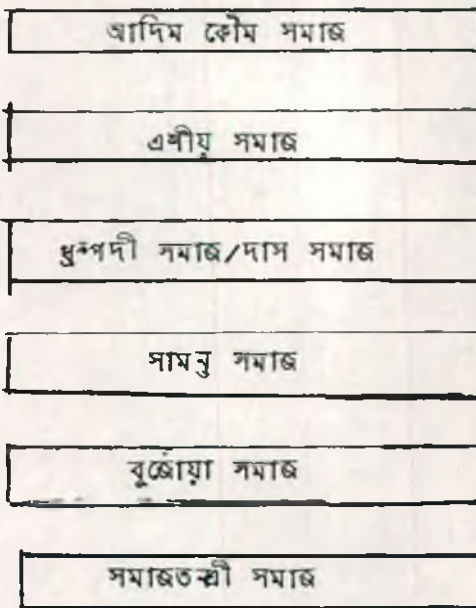 আদিম কৌম সমাজ
এশীয় সমাজ
ধ্রুপদী সমাজ/দাস সমাজ
সামন্ত সমাজ
বুর্জোয়া সমাজ
সমাজতন্ত্রী সমাজ